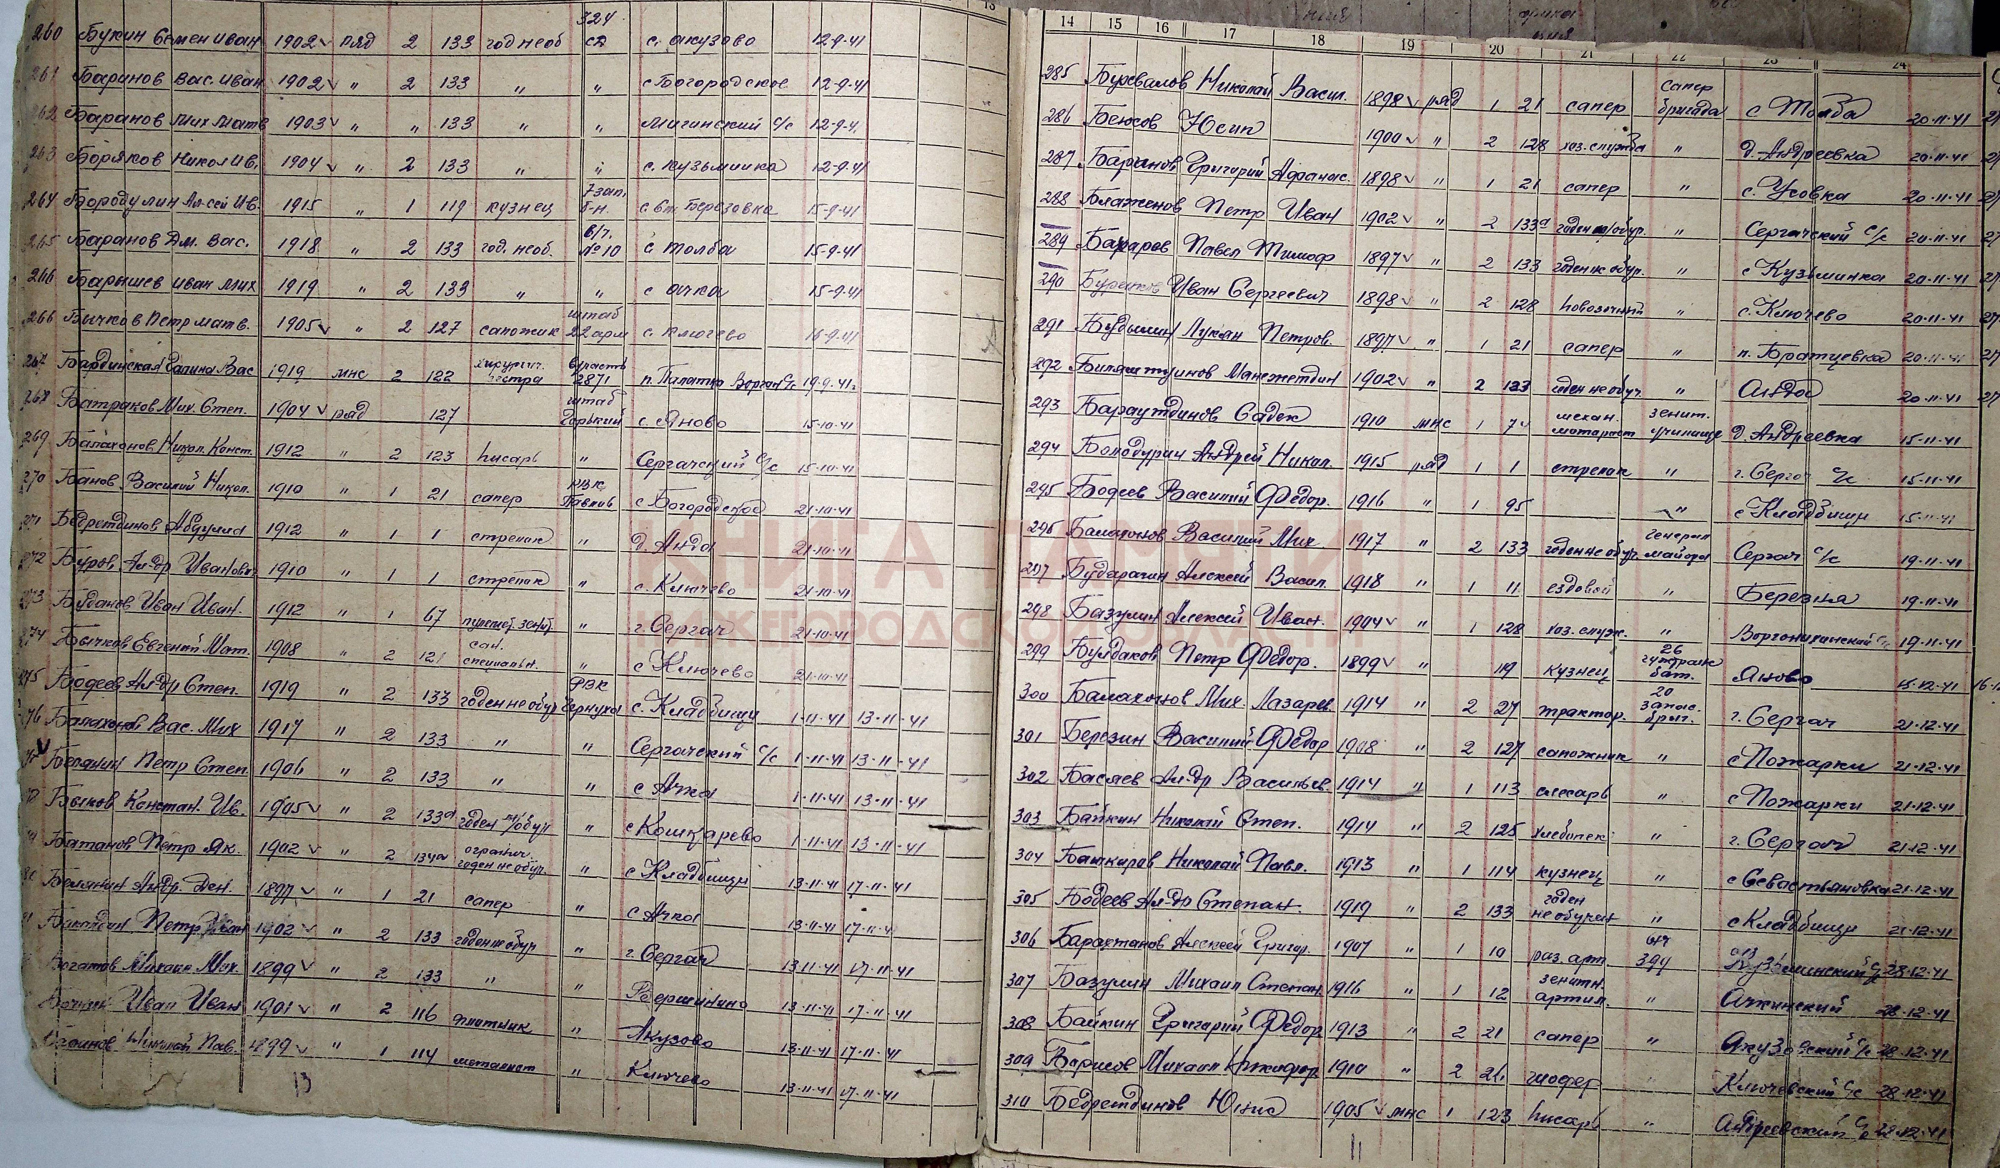 324
260 Букин Семен Иван 1902 ряд 2 133 год необ сд с. Акузово 12-9-41
261 Баринов Вас. Иван 1902 " 2 133 " " с Богородское 12-9-41
262 Баранов Мих Матв 1903 " " 133 " " Мигинский с/с 12-9-41
263 Боряков Никол Ив. 1904 " 2 133 " " с. Кузьминка 12-9-41
264 Бородулин Ал-сей Ив. 1915 " 1 119 кузнец 7 зап. б-н. с. Березовка 15-9-41
265 Баранов Дм. Вас. 1918 " 2 133 год. необ. в/т. №10 с Толба 15-9-41
266 Барышев Иван Мих 1919 " 2 133 " " с Ачка 15-9-41
266 Бычков Петр Матв. 1905 " 2 127 сапожник штаб 22 арм с. Ключево 16-9-41
267 Бардинская Галина Вас 1919 мнс 2 122 хирургич. сестра в/часть 2871 п. Палатка 19-9-41
268 Батраков Мих. Степ. 1904 ряд 127 штаб Горький с. Яново 15-10-41
269 Балахонов Никол. Конст. 1912 " 2 123 писарь " Сергачский с/с 15-10-41
270 Банов Василий Никол. 1910 " 1 21 сапер РВК Павлов с. Богородское 21-10-41
271 Бедретдинов Абдулла 1912 " 1 1 стрелок " д. Анда 21-10-41
272 Буров Ал-др Иванович 1910 " 1 1 стрелок " с. Ключево 21-10-41
273 Буданов Иван Иван. 1912 " 1 67 пулемет. зенит " г. Сергач 21-10-41
274 Бычков Евгений Мат. 1908 " 2 121 сан. специальн. " с Ключево 21-10-41
275 Бодеев Ал-др Степ. 1919 " 2 133 годен не обуч РВК Чернуха с. Кладбищи 1-11-41 13-11-41
276 Балахонов Вас. Мих 1917 " 2 133 " " Сергачский с/с 1-11-41 13-11-41
Белянин Петр Степ 1906 " 2 133 " " с Ачка 1-11-41 13-11-41
Быков Констан. Ив. 1905 " 2 133а годен н/обуч " с Кошкарево 1-11-41 13-11-41
Батанов Петр Як. 1902 " 2 134а огранич. годен не обуч. " с Кладбищи 13-11-41 17-11-41
Белянин Андр. Ден. 1897 " 1 21 сапер " с Ачка 13-11-41 17-11-41
Петр Иван 1902 " 2 133 годен не обуч " г. Сергач 13-11-41 17-11-41
Богатов Михаил Мих. 1899 " 2 133 " " 13-11-41 17-11-41
Иван Иван 1901 " 2 116 плотник " Акузово 13-11-41 17-11-41
Николай Пав. 1899 " 1 114 металист " Ключево 13-11-41 17-11-41
13
14 15 16 17 18 19 20 21 22 23 24
285 Буревалов Николай Васил. 1898 ряд 1 21 сапер сапер бригада с Толба 20-11-41
286 Беюсов Юсип 1900 " 2 128 хоз. служба " д. Андреевка 20-11-41
287 Баринов Григорий Афанас. 1898 " 1 21 сапер " с. Усовка 20-11-41
288 Блаженов Петр Иван 1902 " 2 133а годен н/обуч. " Сергачский с/с 20-11-41
289 Бахарев Павел Тимоф 1897 " 2 133 годен не обуч. " с Кузьминка 20-11-41
290 Иван Сергеевич 1898 " 2 128 повозочный " с. Ключево 20-11-41
291 Будылин Лукьян Петров. 1897 " 1 21 сапер " п. Братцевка 20-11-41
292 Биляштдинов 1902 " 2 133 годен не обуч. " Анда 20-11-41
293 Бараутдинов Садек 1910 мнс 1 механ. мотарист зенит. училище д. Андреевка 15-11-41
294 Болодурин Андрей Никол. 1915 ряд 1 1 стрелок " г. Сергач 15-11-41
295 Бодеев Василий Федор. 1916 " 1 95 " с Кладбищи 15-11-41
296 Балахонов Василий Мих 1917 " 2 133 годен не обуч. генерал майора Сергач с/с 19-11-41
297 Бударагин Алексей Васил. 1918 " 1 11 ездовой " Березня 19-11-41
298 Базулин Алексей Иван. 1904 " 1 128 хоз. служ. " 19-11-41
299 Булдаков Петр Федор. 1899 " 119 кузнец 26 бат. Яново 15-12-41
300 Балахонов Мих. Лазарев 1914 " 2 27 трактор. 20 запас. бриг. г. Сергач 21-12-41
301 Березин Василий Федор 1908 " 2 127 сапожник " с Пожарки 21-12-41
302 Басяев Ал-др Васильев. 1914 " 1 113 слесарь " с Пожарки 21-12-41
303 Байкин Николай Степ. 1914 " 2 125 хлебопек " г. Сергач 21-12-41
304 Башкиров Николай Павл. 1913 " 1 114 кузнец " с Севастьяновка 21-12-41
305 Бодеев Ал-др Степан. 1919 " 2 133 годен не обучен " с Кладбищи 21-12-41
306 Барахтанов Алексей Григор. 1907 " 1 10 раз. арт. 394 Кузьминский с/с 28-12-41
307 Базулин Михаил Степан 1916 " 1 12 зенитн. артил. " Ачкинский 28-12-41
308 Байкин Григорий Федор 1913 " 2 21 сапер " Акузовский с/с 28-12-41
309 Борисов Михаил Никифор. 1910 " 2 26 шофер " Ключевский с/с 28-12-41
310 Бедретдинов Юнис 1905 мнс 1 123 писарь " Андреевский с/с 28-12-41
11
КНИГА ПАМЯТИ
НИЖЕГОРОДСКОЙ ОБЛАСТИ